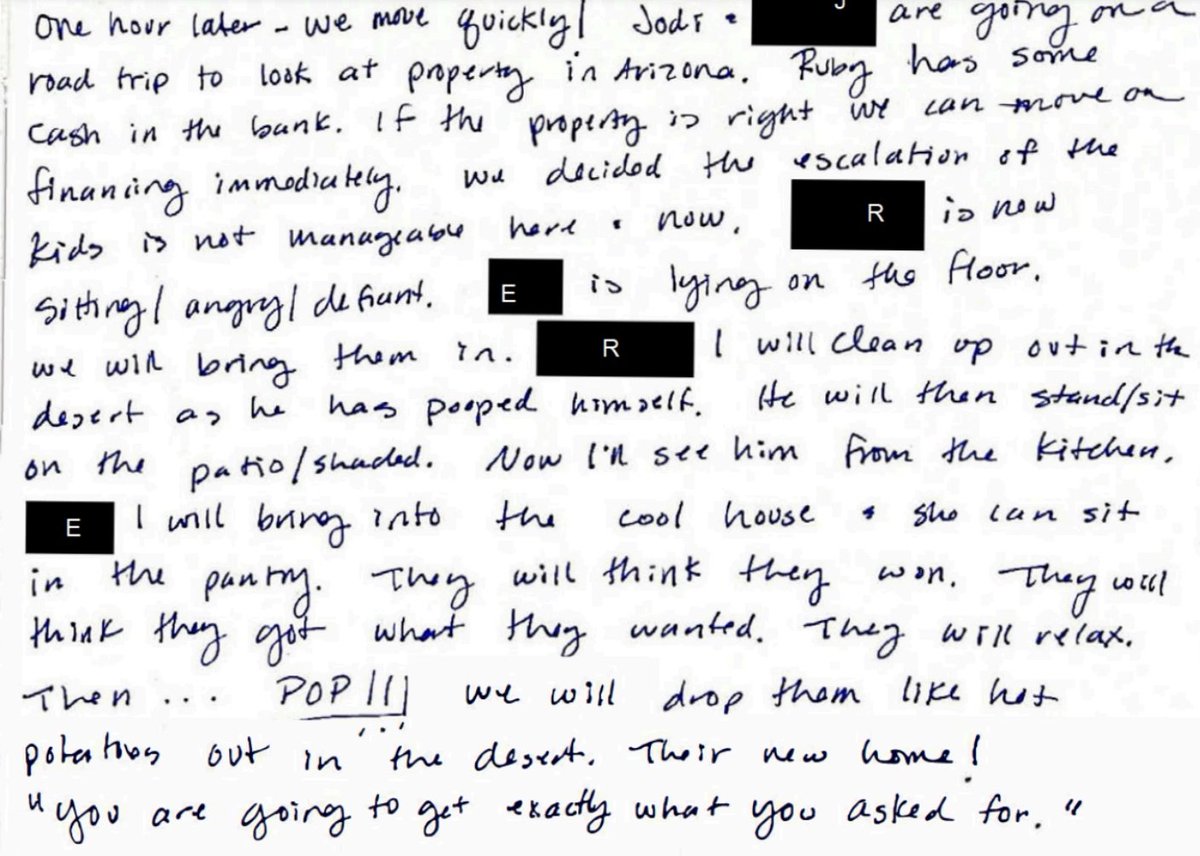 One hour later - we move quickly! Jodi & J are going on a
road trip to look at property in Arizona. Ruby has some
cash in the bank. If the property is right we can move on
financing immediately. We decided the escalation of the
kids is not manageable here & now. R is now
sitting/angry/defiant. E is lying on the floor.
we will bring them in. R I will clean up out in the
desert as he has pooped himself. He will then stand/sit
on the patio/shaded. Now I'll see him from the kitchen.
E I will bring into the cool house & she can sit
in the pantry. They will think they won. They will
think they got what they wanted. They will relax.
Then ... POP!!! we will drop them like hot
potatoes out in the desert. Their new home!
"You are going to get exactly what you asked for."